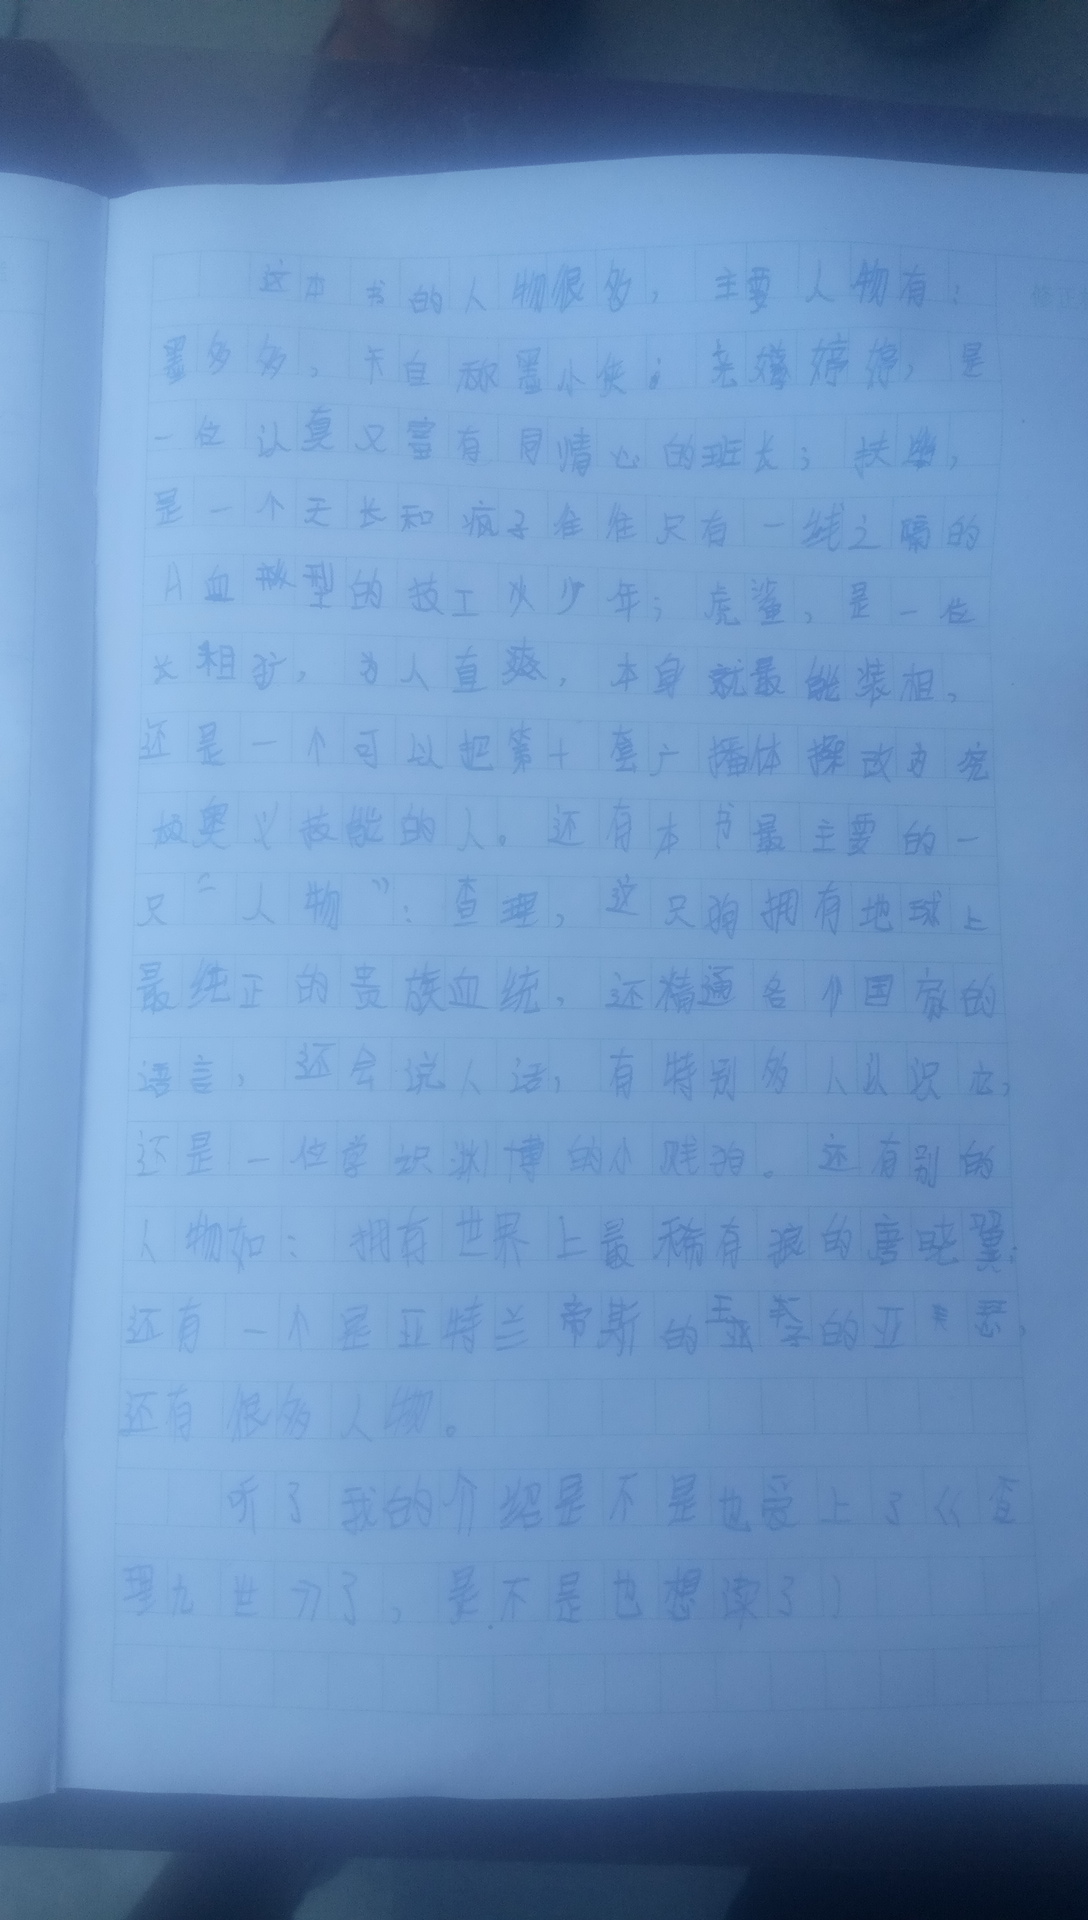 这本书的人物很多，主要人物有：
墨多多，自称墨小侠；尧婷婷，是
一位认真又富有同情心的班长；扶幽，
是一个天长和疯子往往只有一线之隔的
血型的技工少年；虎鲨，是一位
长相犷，为人直爽，本身就最能装相，
还是一个可以把第十套广播体操改为究
极奥义技能的人。还有本书最主要的一
只“人物”：查理，这只狗拥有地球上
最纯正的贵族血统，还精通各个国家的
语言，还会说人话，有特别多人认识它，
还是一位学识渊博的小贱狗。还有别的
人物如：拥有世界上最稀有狼的唐晓翼；
还有一个是亚特兰帝斯的的亚
还有很多人物。
听了我的介绍是不是也爱上了《查
理九世》了，是不是也想读了